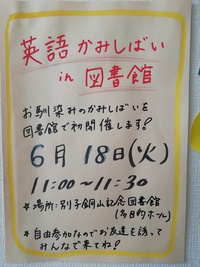 英語かみしばい
in 図書館
お馴染みのかみしばいを
図書館で初開催します!
6月 18日(火)
11:00~11:30
*場所:別子銅山記念図書館
(多目的ホール)
*自由参加なのでお友達を誘って
みんなで来てね!